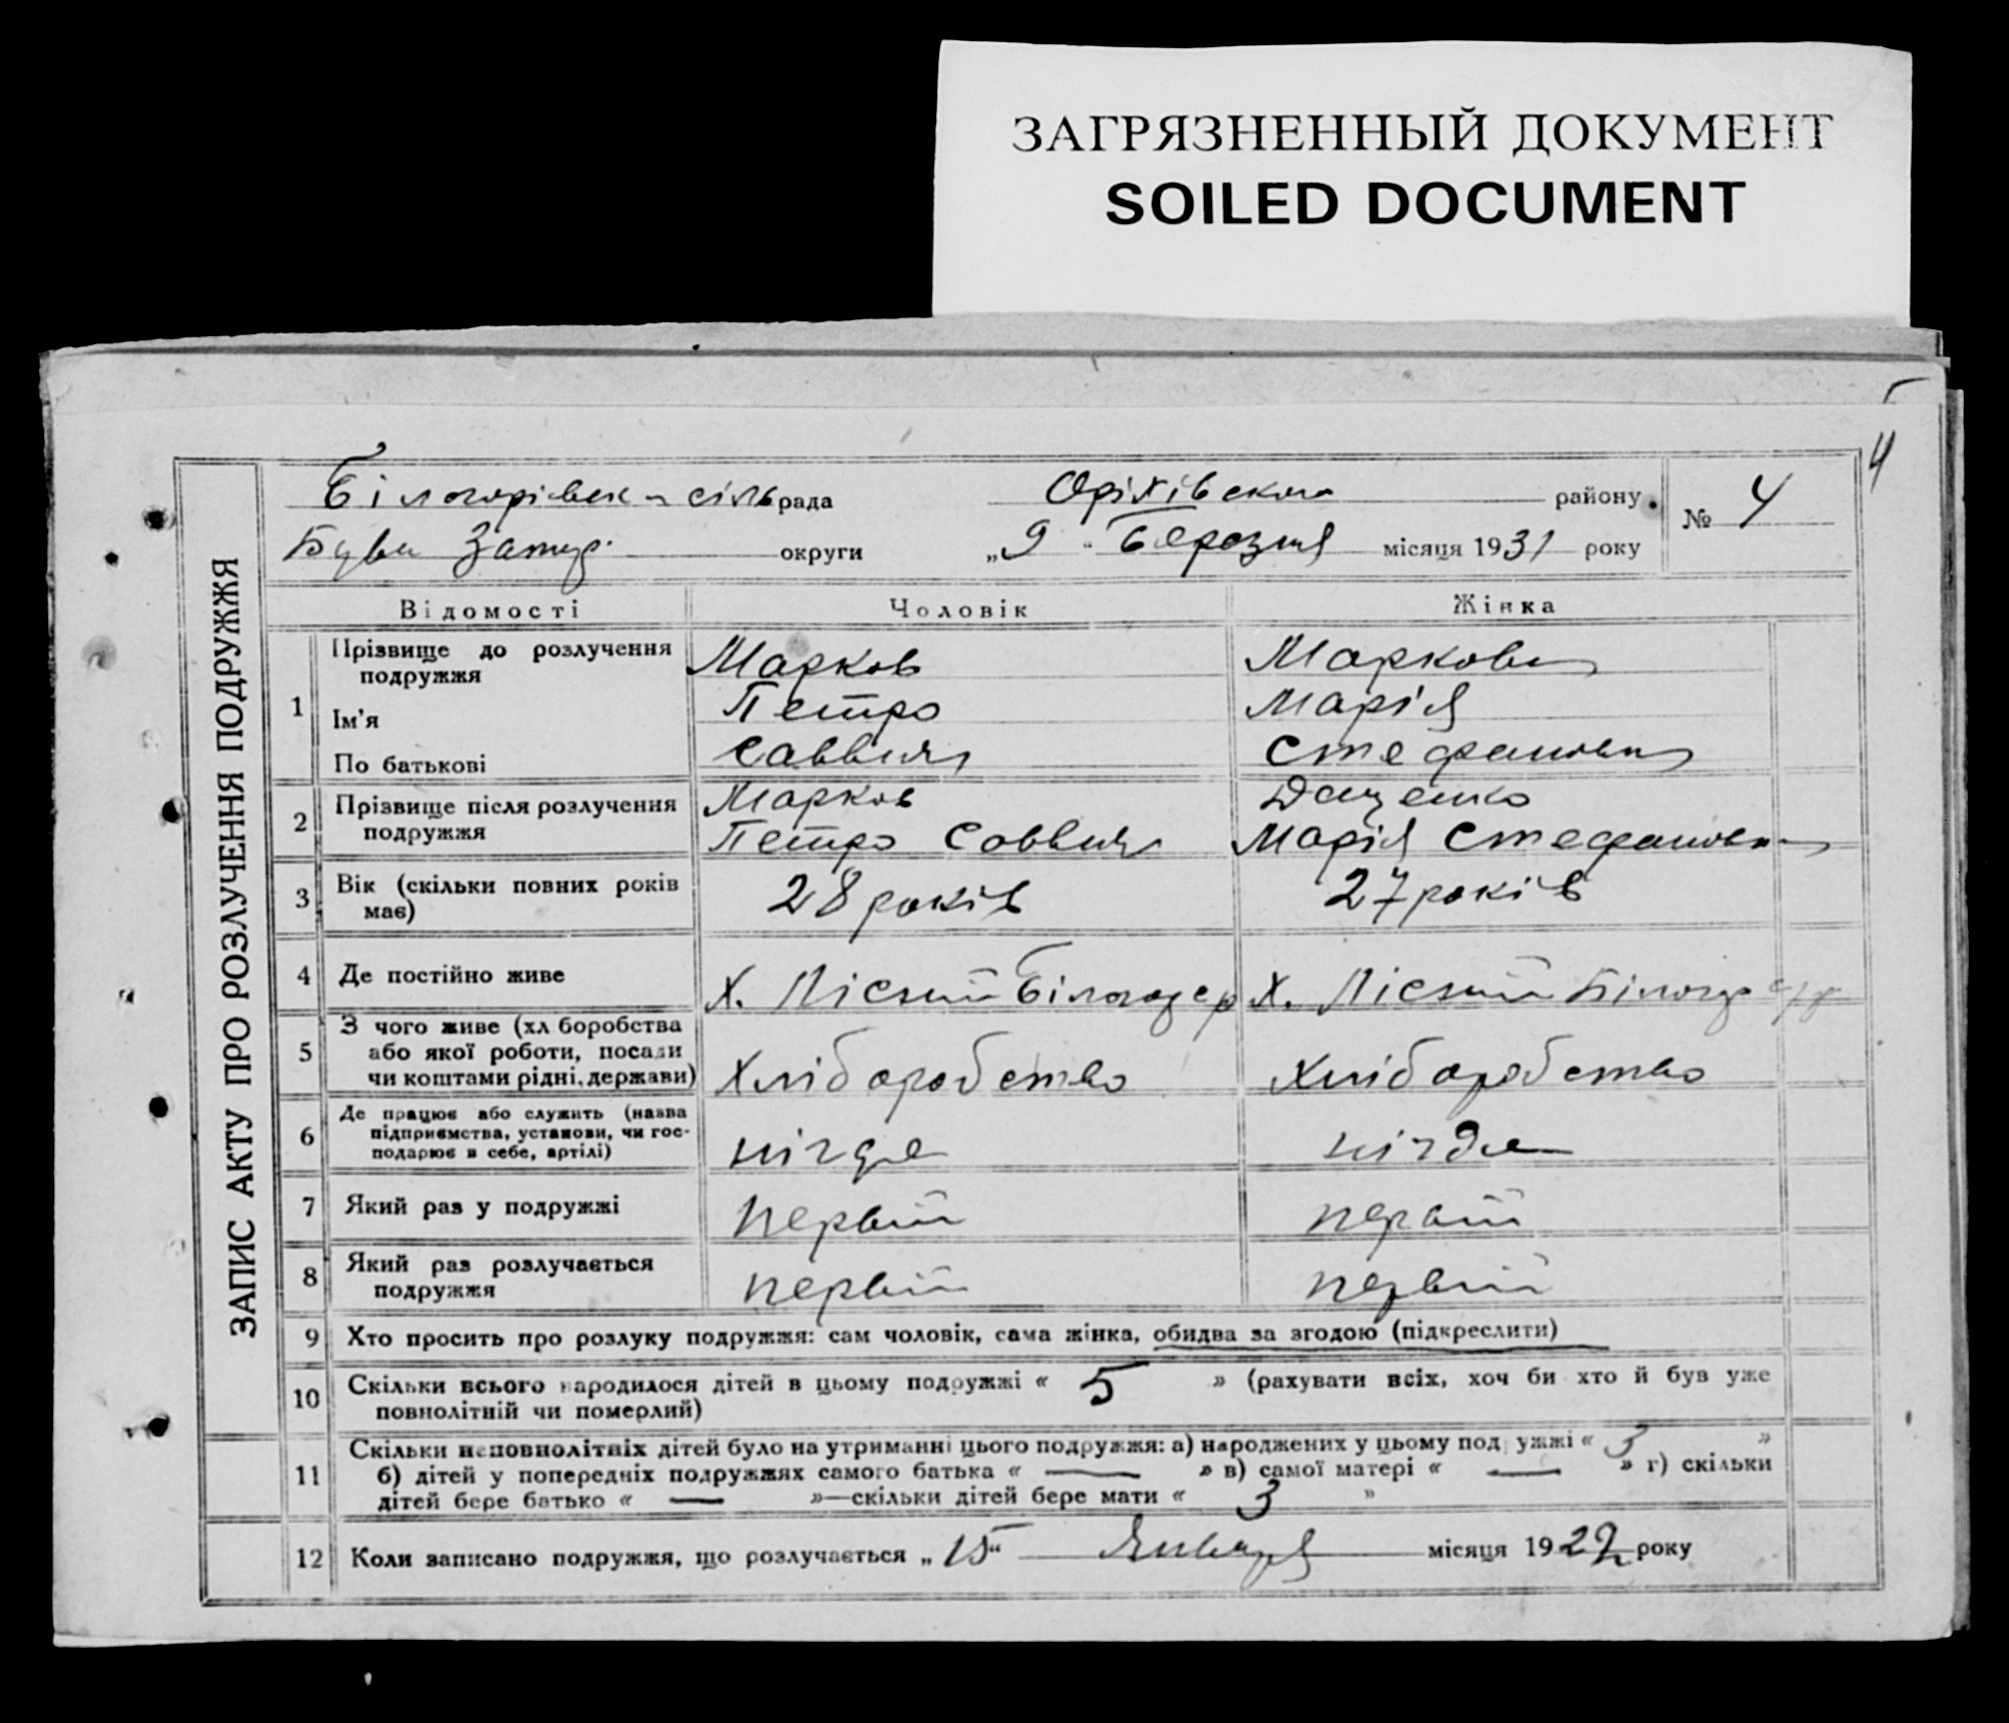 ЗАГРЯЗНЕННЫЙ ДОКУМЕНТ
SOILED DOCUMENT
4
ЗАПИС АКТУ ПРО РОЗЛУЧЕННЯ ПОДРУЖЖЯ
сільрада Оріхівського району
округи „9" Березня місяця 1931 року
№ 4
Відомості Чоловік Жінка
1 Прізвище до розлучення подружжя Марков Маркова
Ім'я Петро Марія
По батькові Саввич Стефановна
2 Прізвище після розлучення Марков Даценко
подружжя Петро Саввич Марія Стефановна
3 Вік (скільки повних років 28 років 27 років
має)
4 Де постійно живе Х. Х.
5 З чого живе (хліборобства
або якої роботи, посади
чи коштами рідні, держави) Хліборобство Хліборобство
6 Де працює або служить (назва
підприємства, установи, чи гос-
подарює в себе, артілі) нігде нігде
7 Який раз у подружжі первий первий
8 Який раз розлучається
подружжя первий первий
9 Хто просить про розлуку подружжя: сам чоловік, сама жінка, обидва за згодою (підкреслити)
10 Скільки всього народилося дітей в цьому подружжі « 5 » (рахувати всіх, хоч би хто й був уже
повнолітній чи померлий)
11 Скільки неповнолітніх дітей було на утриманні цього подружжя: а) народжених у цьому подружжі « 3 »
б) дітей у попередніх подружжях самого батька « — » в) самої матері « — » г) скільки
дітей бере батько « — »—скільки дітей бере мати « 3 »
12 Коли записано подружжя, що розлучається „15" Января місяця 1922 року